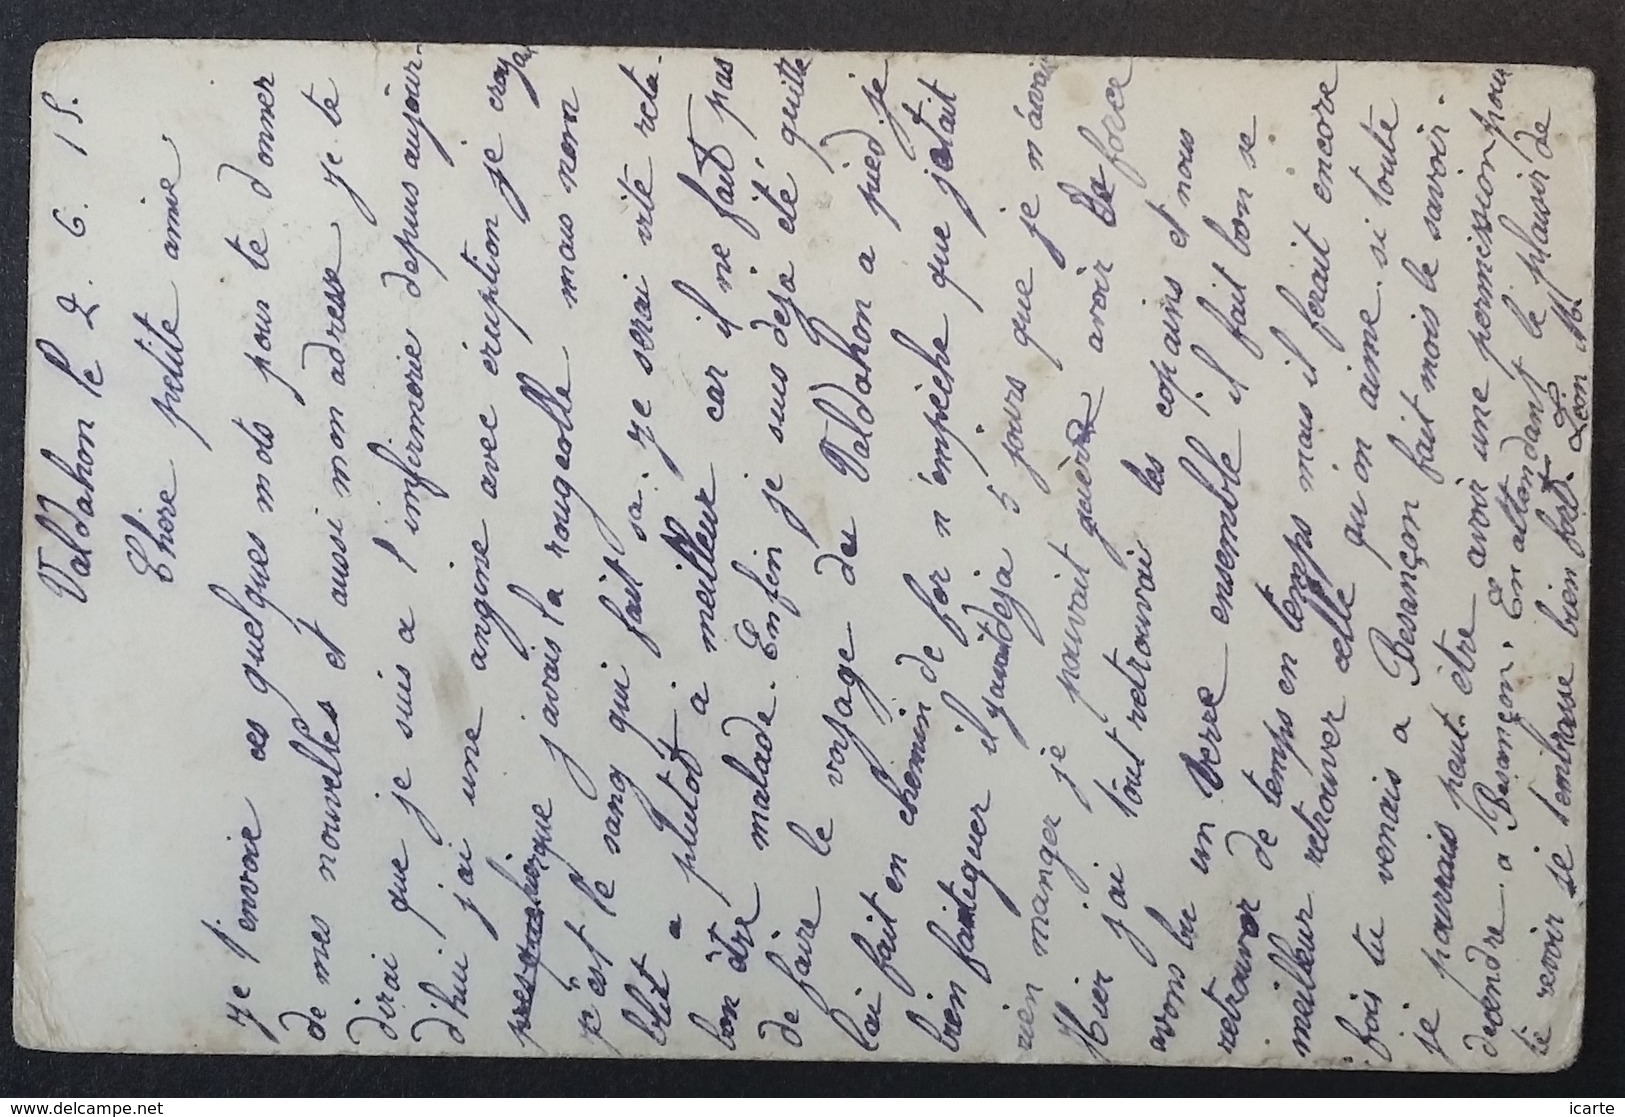 Valdahon le 2. 6. 15.
Chère petite amie
Je t'envoie ces quelques mots pour te donner
de mes nouvelles et aussi mon adresse je te
dirai que je suis a l'infirmerie depuis aujour-
d'hui j'ai une angine avec éruption je croy
que j'avais la rougeolle mais non
s'est le sang qui fait sa. je serai vite reta-
blit a plutot a meilleur car il ne fait pas
bon être malade. Enfin je suis deja été quitte
de faire le voyage du Valdahon a pied je
l'ai fait en chemin de fer n'empèche que jetait
bien fatiguer il y avait deja 5 jours que je n'avais
rien manger je pouvait guère avoir la force
Hier j'ai tout retrouvai les copains et nous
avons bu un verre ensemble, il fait bon se
retrouver de temps en temps mais il ferait encore
meilleur retrouver celle qu'on aime. si toute
fois tu venais a Besançon fait mois le savoir.
je pourrais peut-être avoir une permission pour
descendre a Besançon. En attendant le plaisir de
te revoir je t'embrasse bien fort. Léon
www.delcampe.net
icarte